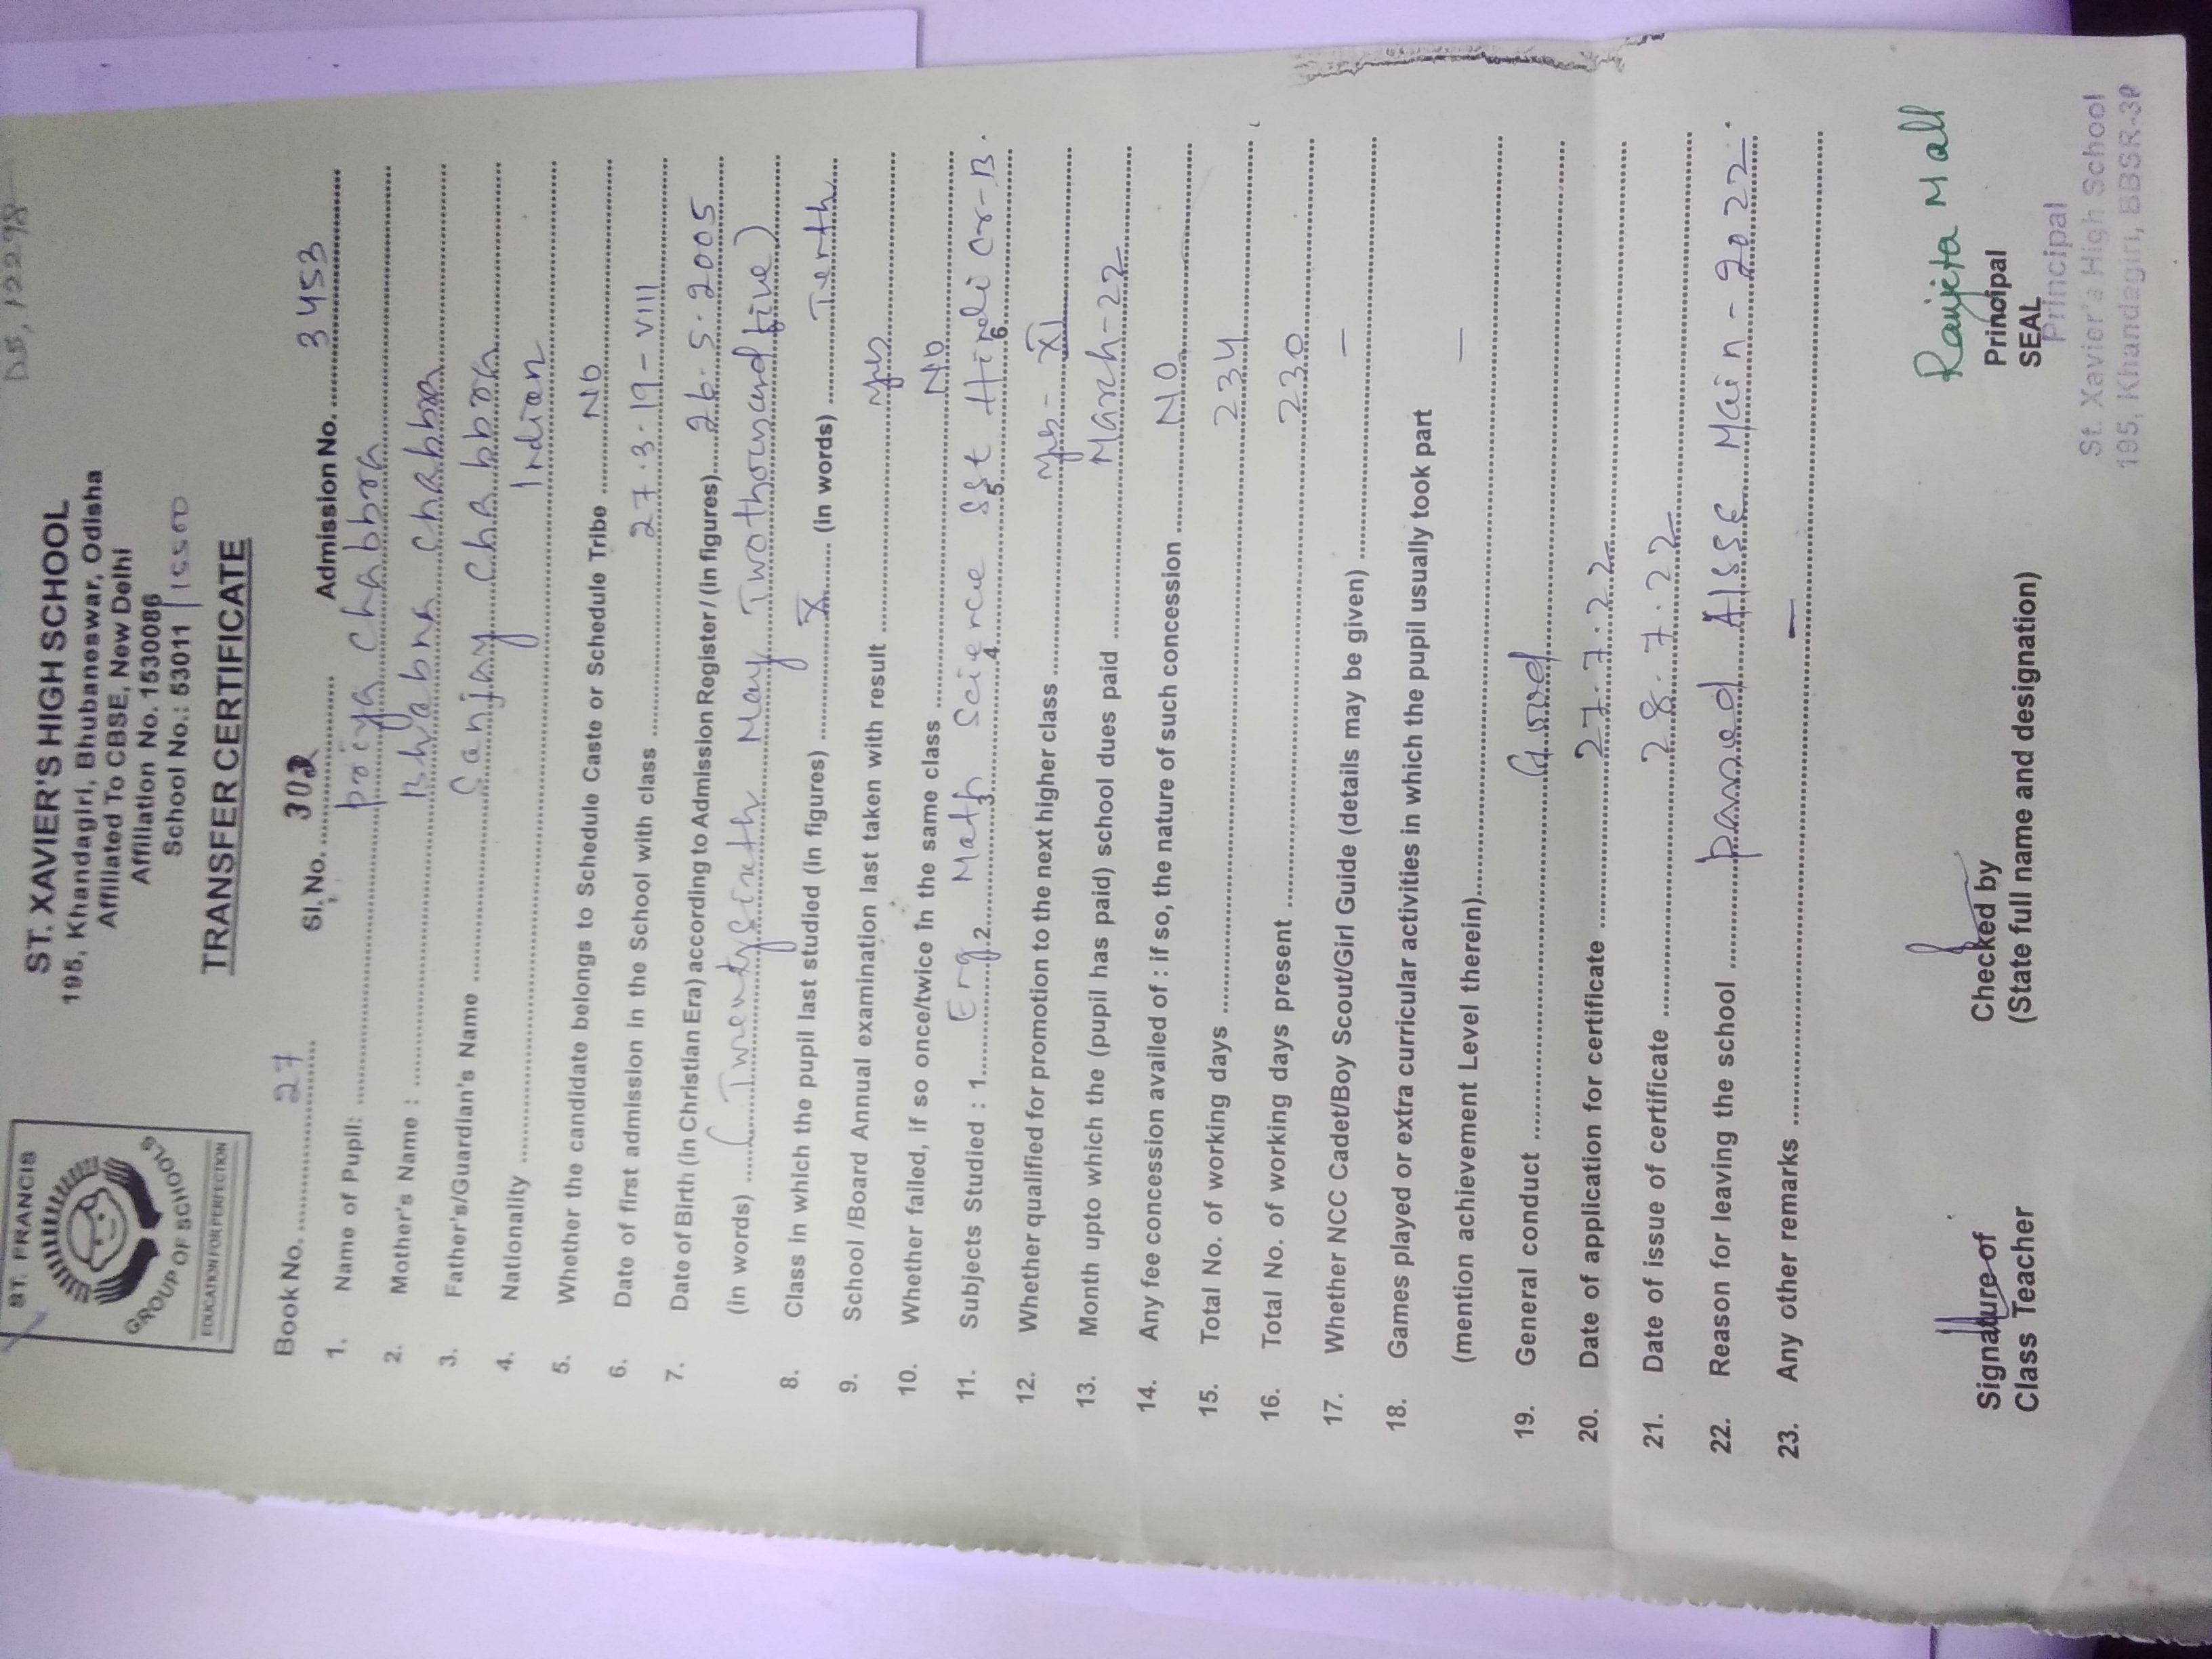 DS, 12298
ST. FRANCIS
GROUP OF SCHOOLS
EDUCATION FOR PERFECTION
ST. XAVIER'S HIGH SCHOOL
195, Khandagiri, Bhubaneswar, Odisha
Affiliated To CBSE, New Delhi
Affiliation No. 1530086
School No.: 53011 / 15500
TRANSFER CERTIFICATE
Book No. 27 Sl. No. 302 Admission No. 3453
1. Name of Pupil: priya chabbra
2. Mother's Name : Bhabna chabbra
3. Father's/Guardian's Name Sanjay chabbra
4. Nationality Indian
5. Whether the candidate belongs to Schedule Caste or Schedule Tribe No
6. Date of first admission in the School with class 27.3.19-VIII
7. Date of Birth (in Christian Era) according to Admission Register/ (In figures) 26.5.2005
(in words) (Twentysixth May Twothousand five)
8. Class in which the pupil last studied (in figures) X (in words) Tenth
9. School /Board Annual examination last taken with result yes
10. Whether failed, if so once/twice in the same class No
11. Subjects Studied : 1. Eng 2. Math 3. Science 4. SSt 5. Hindi Cr-B. 6
12. Whether qualified for promotion to the next higher class yes - XI
13. Month upto which the (pupil has paid) school dues paid March-22
14. Any fee concession availed of : if so, the nature of such concession NO
15. Total No. of working days 234
16. Total No. of working days present 230
17. Whether NCC Cadet/Boy Scout/Girl Guide (details may be given) —
18. Games played or extra curricular activities in which the pupil usually took part
(mention achievement Level therein) —
19. General conduct Good
20. Date of application for certificate 27.7.22
21. Date of issue of certificate 28.7.22
22. Reason for leaving the school passed AISSE Main-2022.
23. Any other remarks —
Signature of
Class Teacher
Checked by
(State full name and designation)
Ranjeta Mall
Principal
SEAL
Principal
St. Xavier's High School
195, Khandagiri, BBSR-30